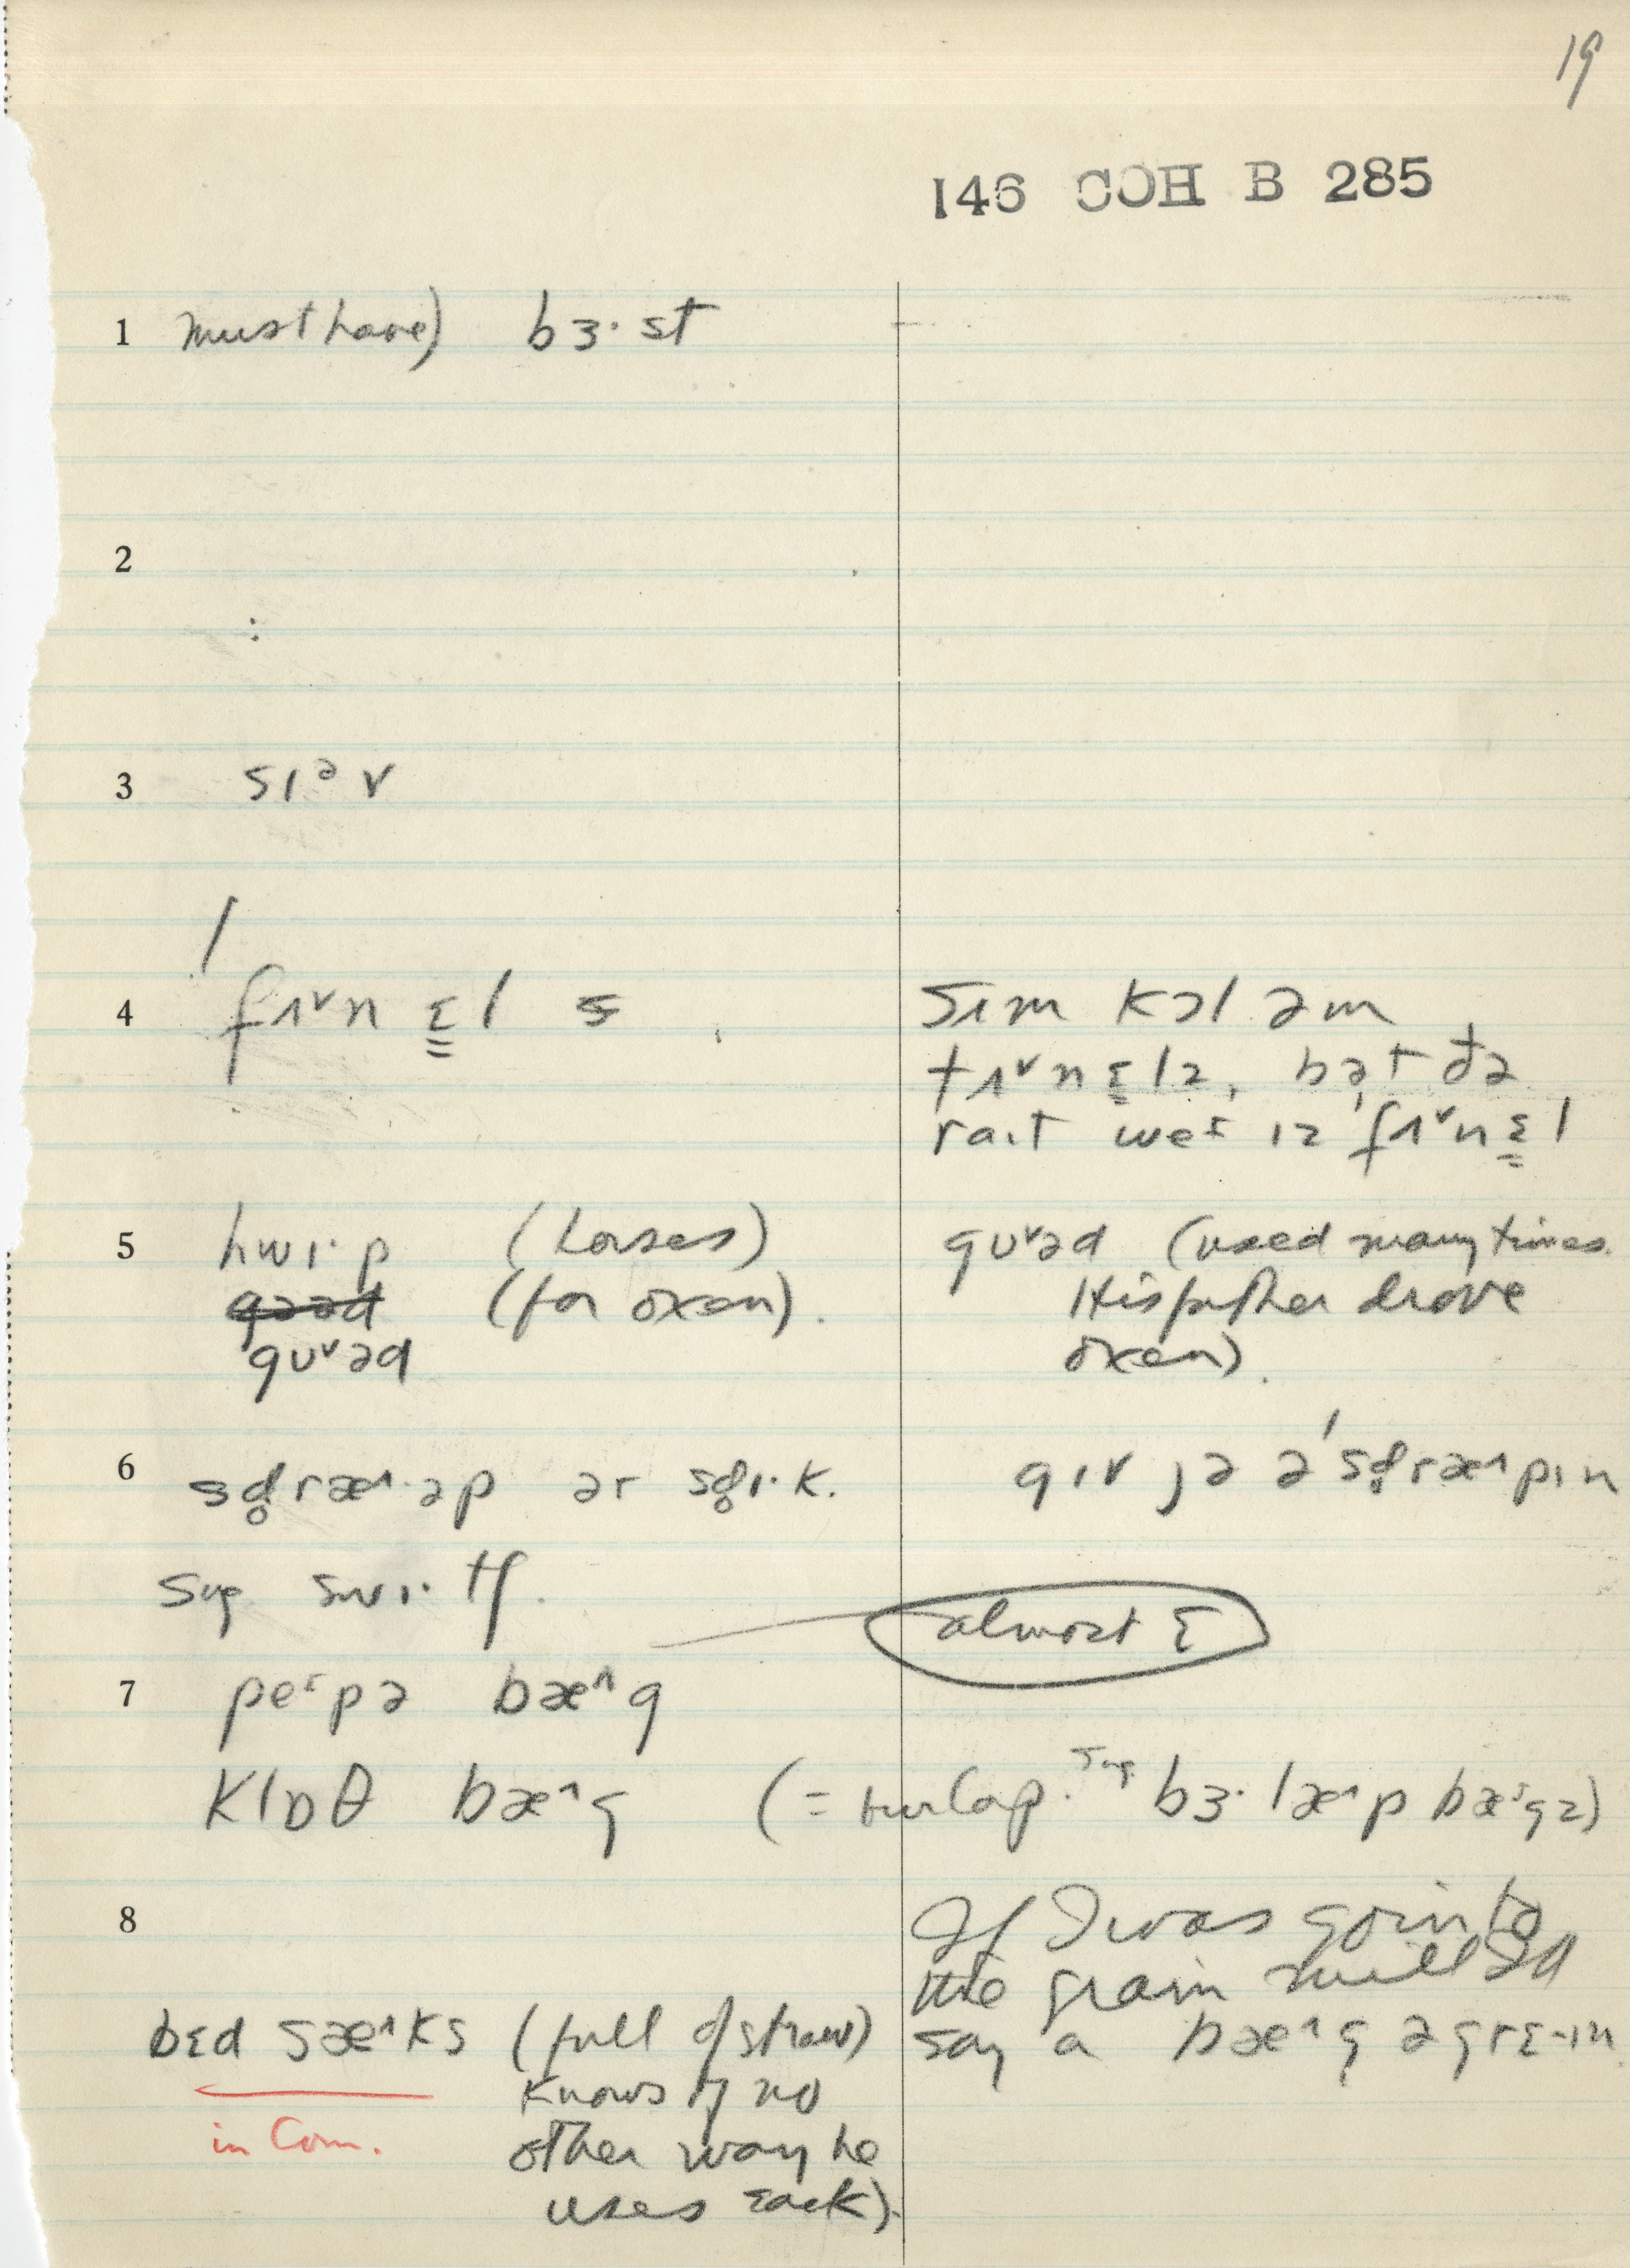 19
146 COH B 285
1 must have) bɜ·st
2
:
3 sɪᵊv
4 fɪ˅nɛ̳l s
sɪm kɔl əm
tɪ˅nɛ̳lz, bət đə
raɪt weɪ ɪz ˈfɪ˅nɛ̳l
5 hwɪ·p (horses)
(for oxen).
gʊ˅əd
gʊ˅əd (used many times.
His father drove
oxen).
6 sd̥ræ^·əp ər sd̥ɪ·k.
gɪv jə ə ˈsd̥ræ^pɪn
sug. swɪ·tʃ.
almost ɛ
7 peɪpə bæ^g
klɒθ bæ^g (= burlap. sug. bɜ·læ^p bæ^gz)
8 If I was goin to
the grain mill I'd
say a bæ^g ə grɛ-ɪn
bɛd sæ^ks (full of straw)
knows of no
other way he
uses sack).
in Com.